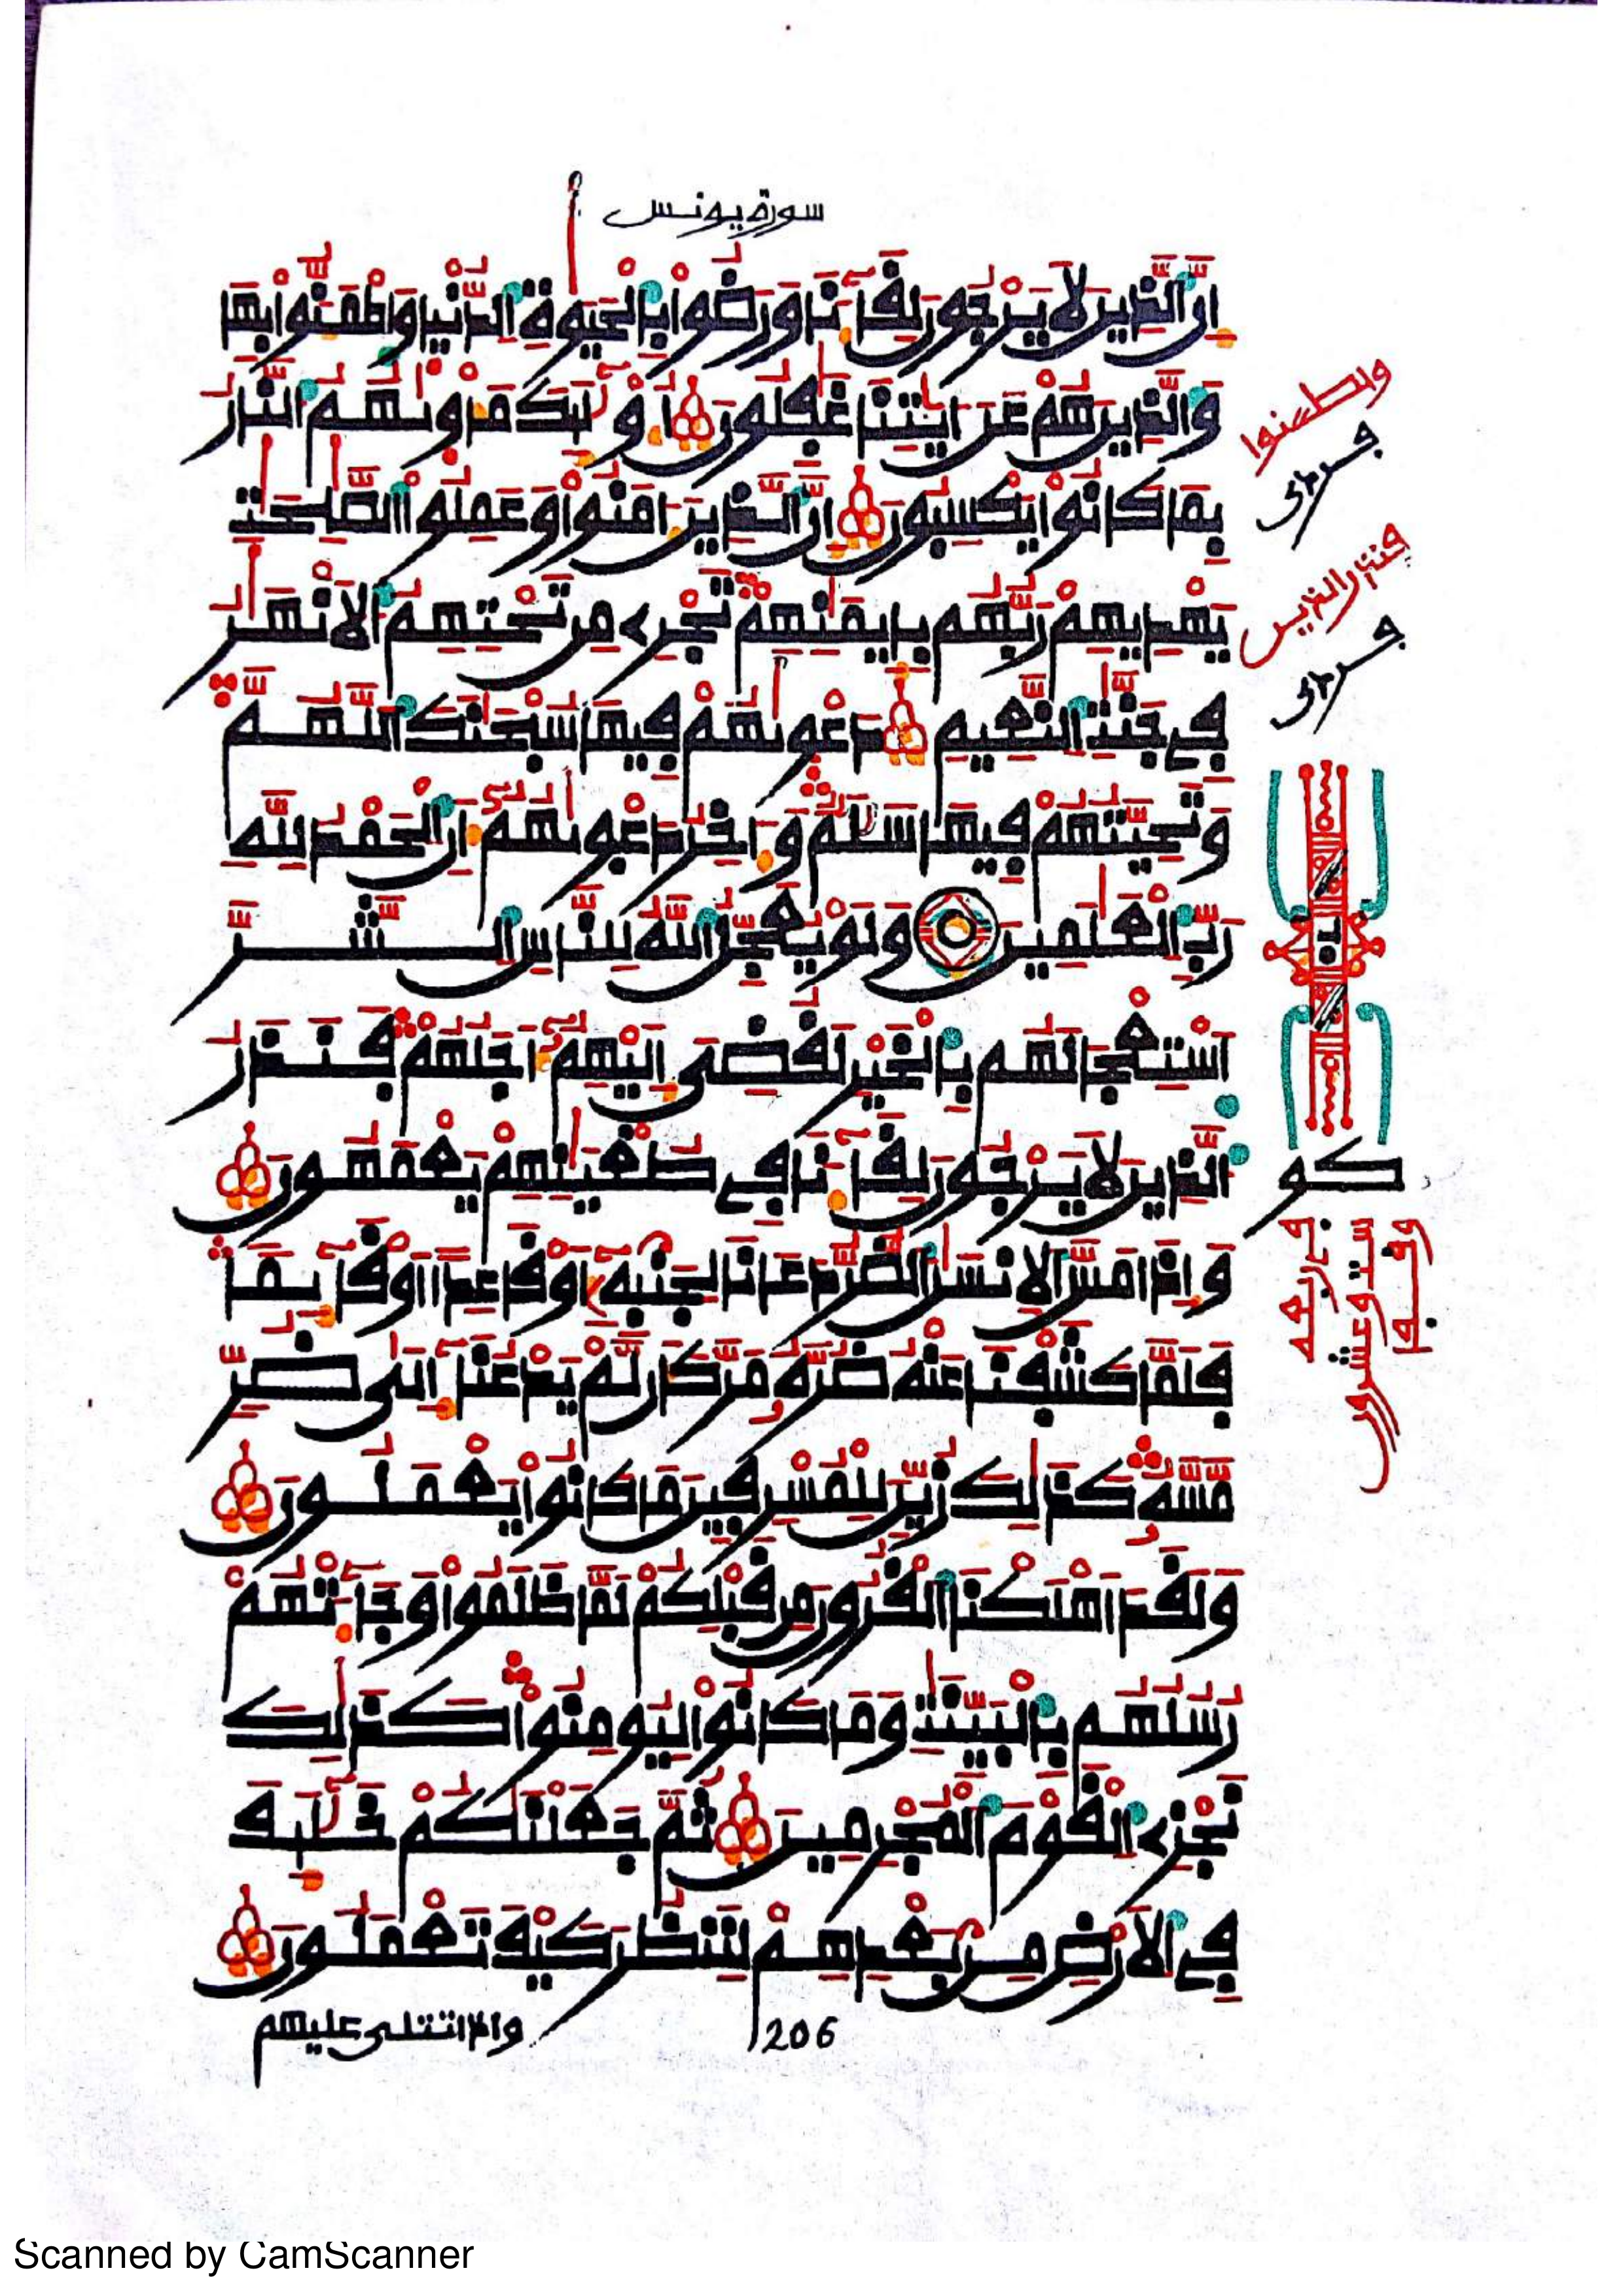 سورة يونس
إن الذين لا يرجون لقاءنا ورضوا بالحيوة الدنيا واطمئنوا بها
والذين هم عن ءايتنا غفلون أولئك مأويهم النار
بما كانوا يكسبون إن الذين ءامنوا وعملوا الصلحت
يهديهم ربهم بإيمنهم تجرے من تحتهم الانهر
في جنت النعيم دعويهم فيها سبحنك اللهم
وتحيتهم فيها سلم وءاخر دعويهم أن الحمد لله
رب العلمين ولو يعجل الله للناس الشر
استعجالهم بالخير لقضي إليهم أجلهم فنذر
الذين لا يرجون لقاءنا في طغينهم يعمهون
وإذا مس الانسن الضر دعانا لجنبه أو قاعدا أو قائما
فلما كشفنا عنه ضره مر كأن لم يدعنا إلى ضر
مسه كذلك زين للمسرفين ما كانوا يعملون
ولقد اهلكنا القرون من قبلكم لما ظلموا وجاءتهم
رسلهم بالبينت وما كانوا ليومنوا كذلك
نجزے القوم المجرمين ثم جعلنكم خلئف
في الارض من بعدهم لننظر كيف تعملون
206
وإذا تتلى عليهم
واطمئنوا
Scanned by CamScanner